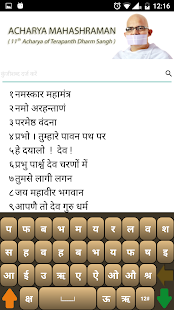 12:16
ACHARYA MAHASHRAMAN
( 11th Acharya of Terapanth Dharm Sangh )
१ नमस्कार महामंत्र
२ नमो अरहन्ताणं
३ परमेष्ठ वंदना
४ प्रभो । तुम्हारे पावन पथ पर
५ हे दयालो । देव !
६ प्रभु पार्श्व देव चरणों में
७ तुमसे लागी लगन
८ जय महावीर भगवान
९ आपणै तो देव गुरु धर्म
प फ ब भ म य र ल
व श स ह
आ ई उ ऋ ऐ ए ओ औ श्र
क्ष ऊ ऋ 12#